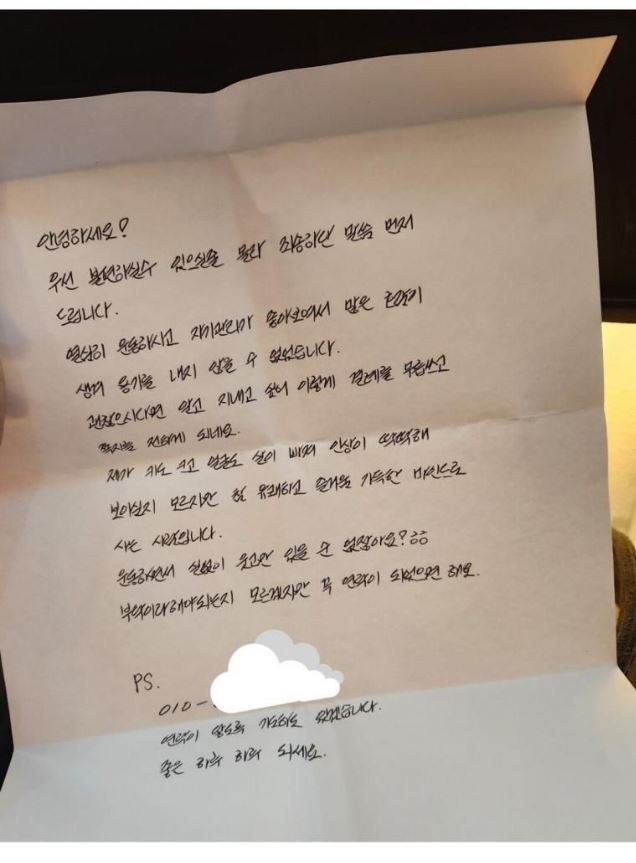 안녕하세요?
우선 불편하실수 있으실줄 몰라 죄송하단 말씀 먼저
드립니다.
열심히 운동하시고 자기관리가 좋아보여서 많은
생겨 용기를 내지 않을 수 없었습니다.
괜찮으시다면 알고 지내고 싶어 이렇게 결례를 무릅쓰고
쪽지를 전하게 되네요.
제가 키도 크고 얼굴도 살이 빠져 인상이 딱딱해
보이실지 모르지만 참 유쾌하고 즐거움 가득한 마인드로
사는 사람입니다.
운동하면서 실없이 웃고만 있을 순 없잖아요?ㅎㅎ
부탁이라해야되는지 모르겠지만 꼭 연락이 되었으면 해요.
PS.
010-
연락이 않도록 기도하고 있겠습니다.
좋은 하루 하루 되세요.